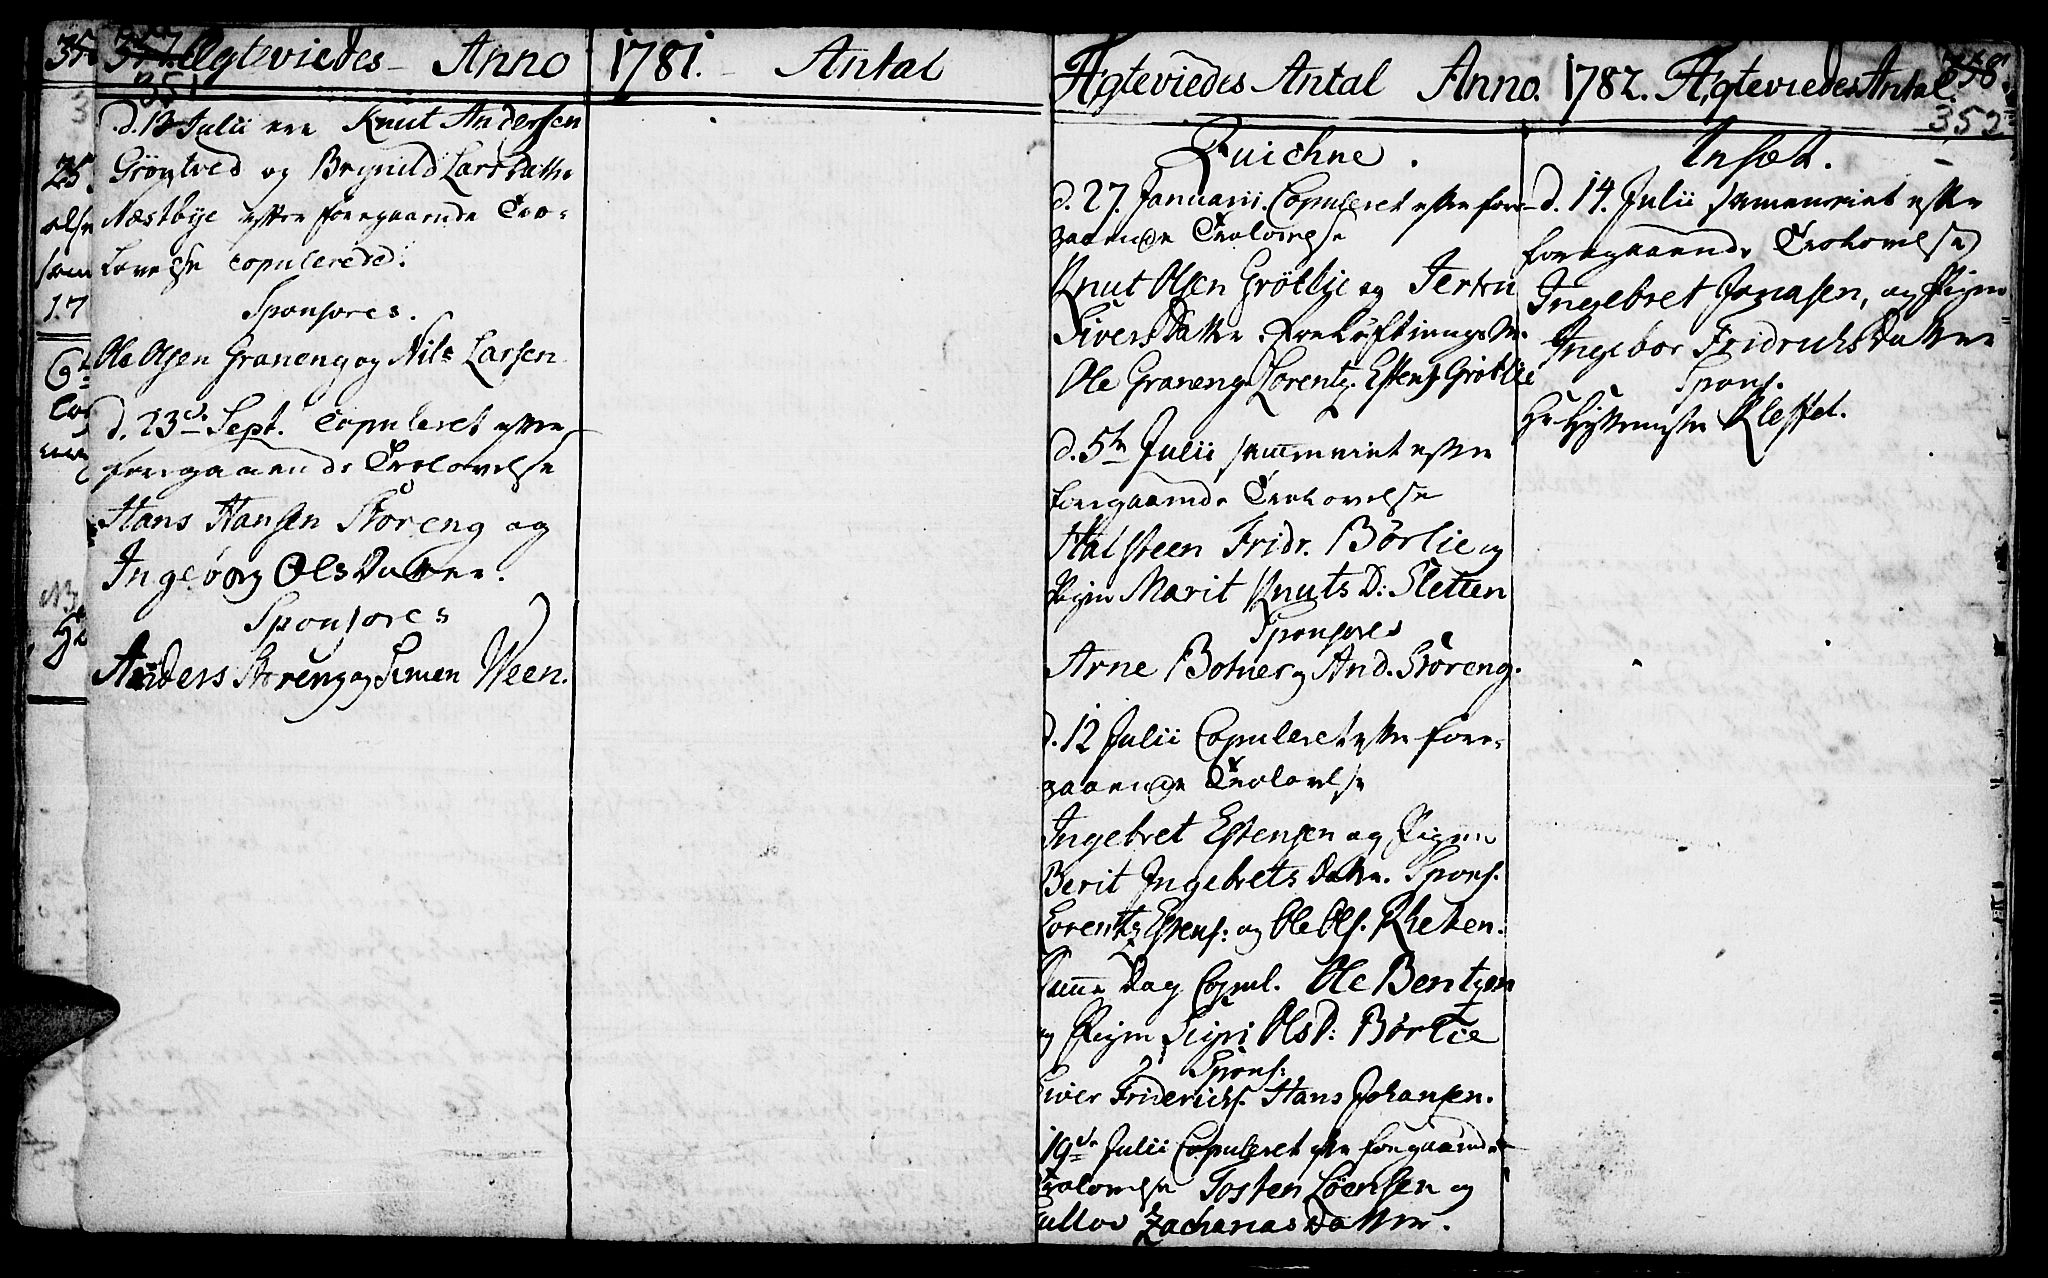 Ægteviedes Anno 1781. Antal
351
d. 13 Julii ere Knut Andersen
Grøntved og Brynild Lars Datter
Næstbye efter foregaaende Tro-
lovelse copulerede.
Sponsores.
Ole Olsen Graneng og Nils Larsen
d. 23de Sept. Copuleret efter
foregaaende Trolovelse
Hans Hansen Storeng og
Ingeborg Ols Datter.
Sponsores
Anders Storeng og Simen Ween.
Ægteviedes Antal Anno. 1782. Ægteviedes Antal.
358.
352
Quichne.
d. 27. Januarii. Copuleret efter fore-
gaaende Trolovelse
Knut Olsen Grötlie og Jertru
Sivers Datter. Forlöftningsm.
Ole Graneng Lorentz Estens. Grötlie
d. 5te Julii sammenviet efter
foregaaende Trolovelse
Halsteen Fridr. Börlie og
Pigen Marit Knuts D: Sletten
Sponsores
Arne Botner og And. Storeng.
d. 12 Julii Copuleret efter fore-
gaaende Trolovelse
Ingebret Estensen og Pigen
Berit Ingebrets Datter. Spons.
Lorentz Estens: og Ole Ols. Rheten.
Samme Dag Copul. Ole Bentzen
og Pigen Sigri Ols D: Börlie
Spons:
Siver Friderichs. Hans Johansen.
19de Julii Copuleret efter foregaaende
Trolovelse Tosten Löensen og
Gullov Zacharias Datter.
Inset.
d. 14. Julii sammenviet efter
foregaaende Trolovelse
Ingebret Jonasen, og Pigen
Ingebor Fridrichs Datter
Spons.
Hr Hyttemester Kleffel.